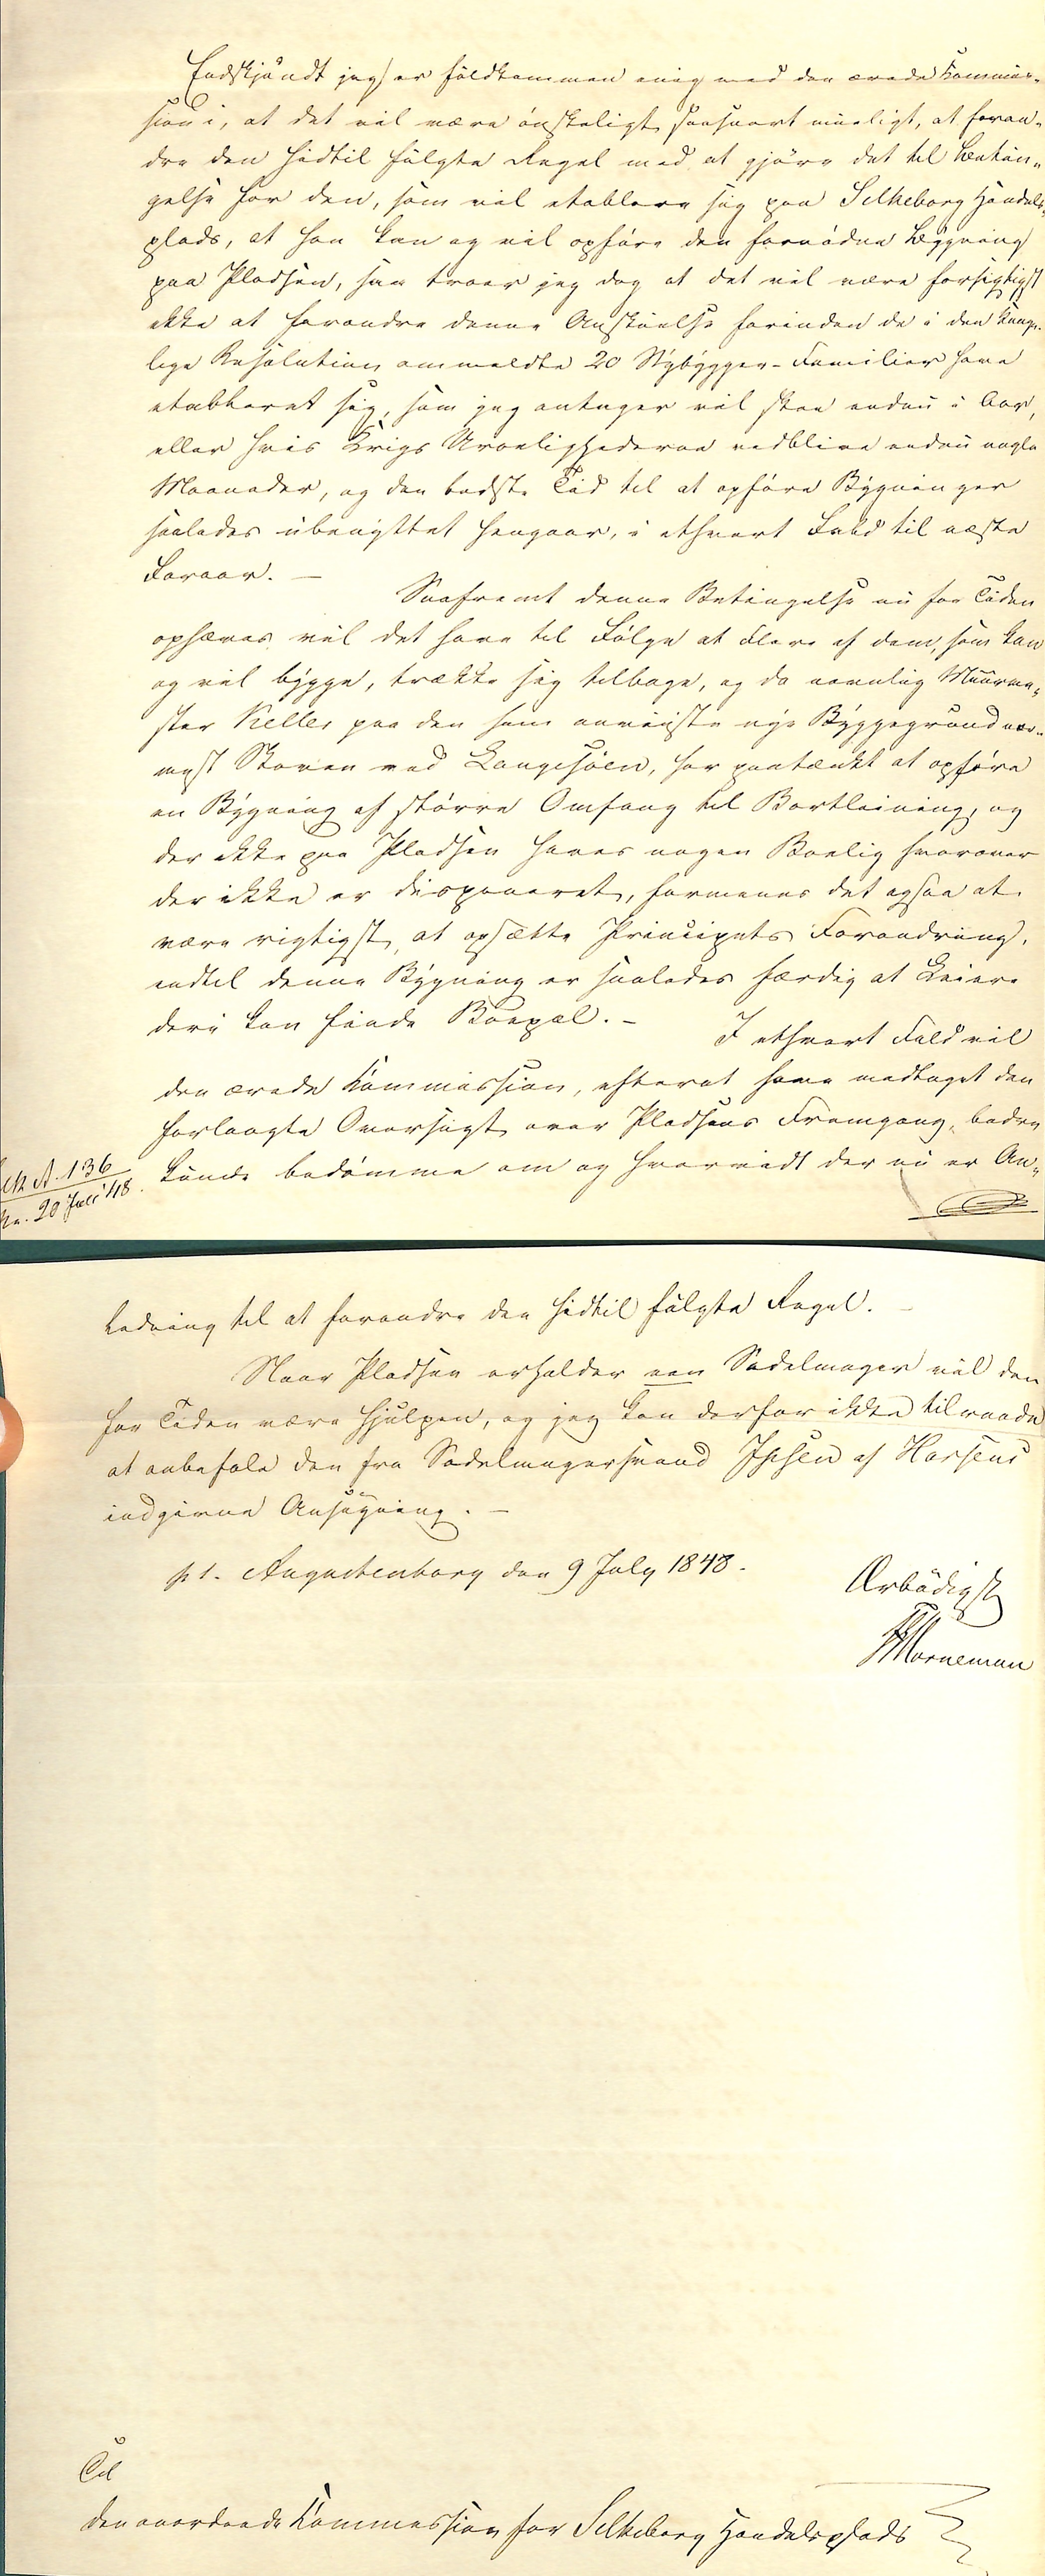 Endskjöndt jeg er fuldkommen enig med den ærede Kommis-
sion i, at det vil være ønskeligt saasnart mueligt, at foran-
dre den hidtil fulgte Regel med at gjøre det til Betin-
gelse for den, som vil etablere sig paa Silkeborg Handels-
plads, at han kan og vil opføre den fornødne Bygning
paa Pladsen, saa troer jeg dog at det vil være forsigtigst
ikke at forandre denne Anskuelse forinden de i den konge-
lige Resolution ommeldte 20 Nybygger-Familier have
etableret sig, som jeg antager vil skee endnu i Aar,
eller hvis Krigs Uroelighederne vedblive endnu nogle
Maaneder, og den bedste Tid til at opføre Bygninger
saaledes ubenyttet hengaar, i ethvert Fald til næste
Foraar. —
Saafremt denne Betingelse nu for Tiden
ophæves vil det have til Følge at Flere af dem, som kan
og vil bygge, trække sig tilbage, og da nemlig Muurme-
ster Keller paa den ham anviiste nye Byggegrund nær-
mest Skoven ved Langesøen, har paatænkt at opføre
en Bygning af større Omfang til Bortleining, og
der ikke paa Pladsen haves nogen Boelig hvorover
der ikke er disponeret, formenes det ogsaa at
være rigtigst, at opsætte Principets Forandring,
indtil denne Bygning er saaledes færdig at Leiere
deri kan finde Boepæl. —
I ethvert Fald vil
den ærede Kommission, efterat have modtaget den
forlangte Oversigt over Pladsens Fremgang, bedre
kunde bedømme om og hvorvidt der nu er An-
A. 136
20 Juli 48.
ledning til at forandre den hidtil fulgte Regel. —
Naar Pladsen erholder een Sadelmager vil den
for Tiden være hjulpen, og jeg kan derfor ikke tilraade
at anbefale den fra Sadelmagersvend Ipsen af Horsens
indgivne Ansøgning. —
p. t. Augustenborg den 9 July 1848.
Ærbødigst
Worneman
Til
den anordnede Kommission for Silkeborg Handelsplads